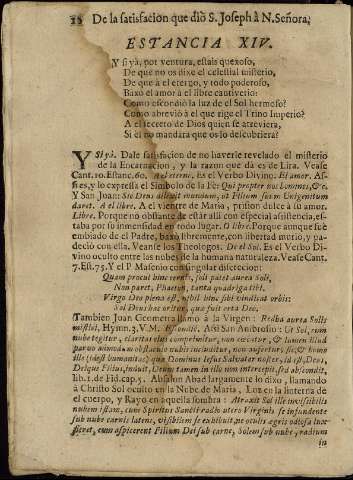 De la satisfacion que diò S. Joseph à N. Señora,
ESTANCIA XIV.
Y si yà, por ventura, estais quexoso,
De que no os dixe el celestial misterio,
De que à el eterno, y todo poderoso,
Baxó el amor à el libre cautiverio:
Como escondiò la luz de el Sol hermoso?
Como abreviò à el que rige el Trino Imperio?
A el secreto de Dios quien se atreviera,
Si el no mandara que os lo descubriera?
Y Si yà. Dale satisfacion de no haverle revelado el misterio
de la Encarnacion, y la razon que dà es de Lira. Vease
Cant. 10. Estanc. 60. A el eterno. Es el Verbo Divino. El amor. As-
si es, y lo expressa el Simbolo de la Fè: Qui propter nos homines, &c.
Y San Juan: Sic Deus dilexit mundum, ut Filium suum Unigenitum
daret. A el libre. A el vientre de Maria, prision dulce à su amor.
Libre. Porque no obstante de estàr alli con especial assistencia, es-
taba por su inmensidad en todo lugar. O libre. Porque aunque fuè
embiado de el Padre, baxò libremente, con libertad muriò, y pa-
deciò con ella. Veanse los Theologos. De el Sol. Es el Verbo Di-
vino oculto entre las nubes de la humana naturaleza. Vease Cant.
7. Est. 75. Y el P. Masenio con singular discrecion:
Quam procul hinc
Non paret, Phaeton, tanta quadriga tibi.
Virgo Deo plena est, nihil hinc sibi vindicat orbis:
Sol Deus hac oritur, quæ fuit orta Dei.
Tambien Juan Geometra llamò à la Virgen: Redha aurea Solis
Hymn. 3. V. M. Assi San Ambrosio: Ut Sol, cum
nube tegitur, claritas eius comprimitur, non cæcatur, & lumen illud
humano: ita Dominus Iesus Salvator noster, id est, Deus,
Deique Filius, induit, Deum tamen in illo non intercepit, sed abscondit,
lib. 1. de Fid. cap. 3. Absalon Abad largamente lo dixo, llamando
à Christo Sol oculto en la Nube de Maria, Luz en la linterna de
el cuerpo, y Rayo en aquella sombra: Sol ille invisibilis
nubem istam, cum Spiritus Sancti radio utero Virginis se infundente
sub nube carnis latens, visibilem se exhibuit, ne oculis ægris odiosa lux
fieret, cum aspicerent Filium Dei sub carne, Solem sub nube, radium
in